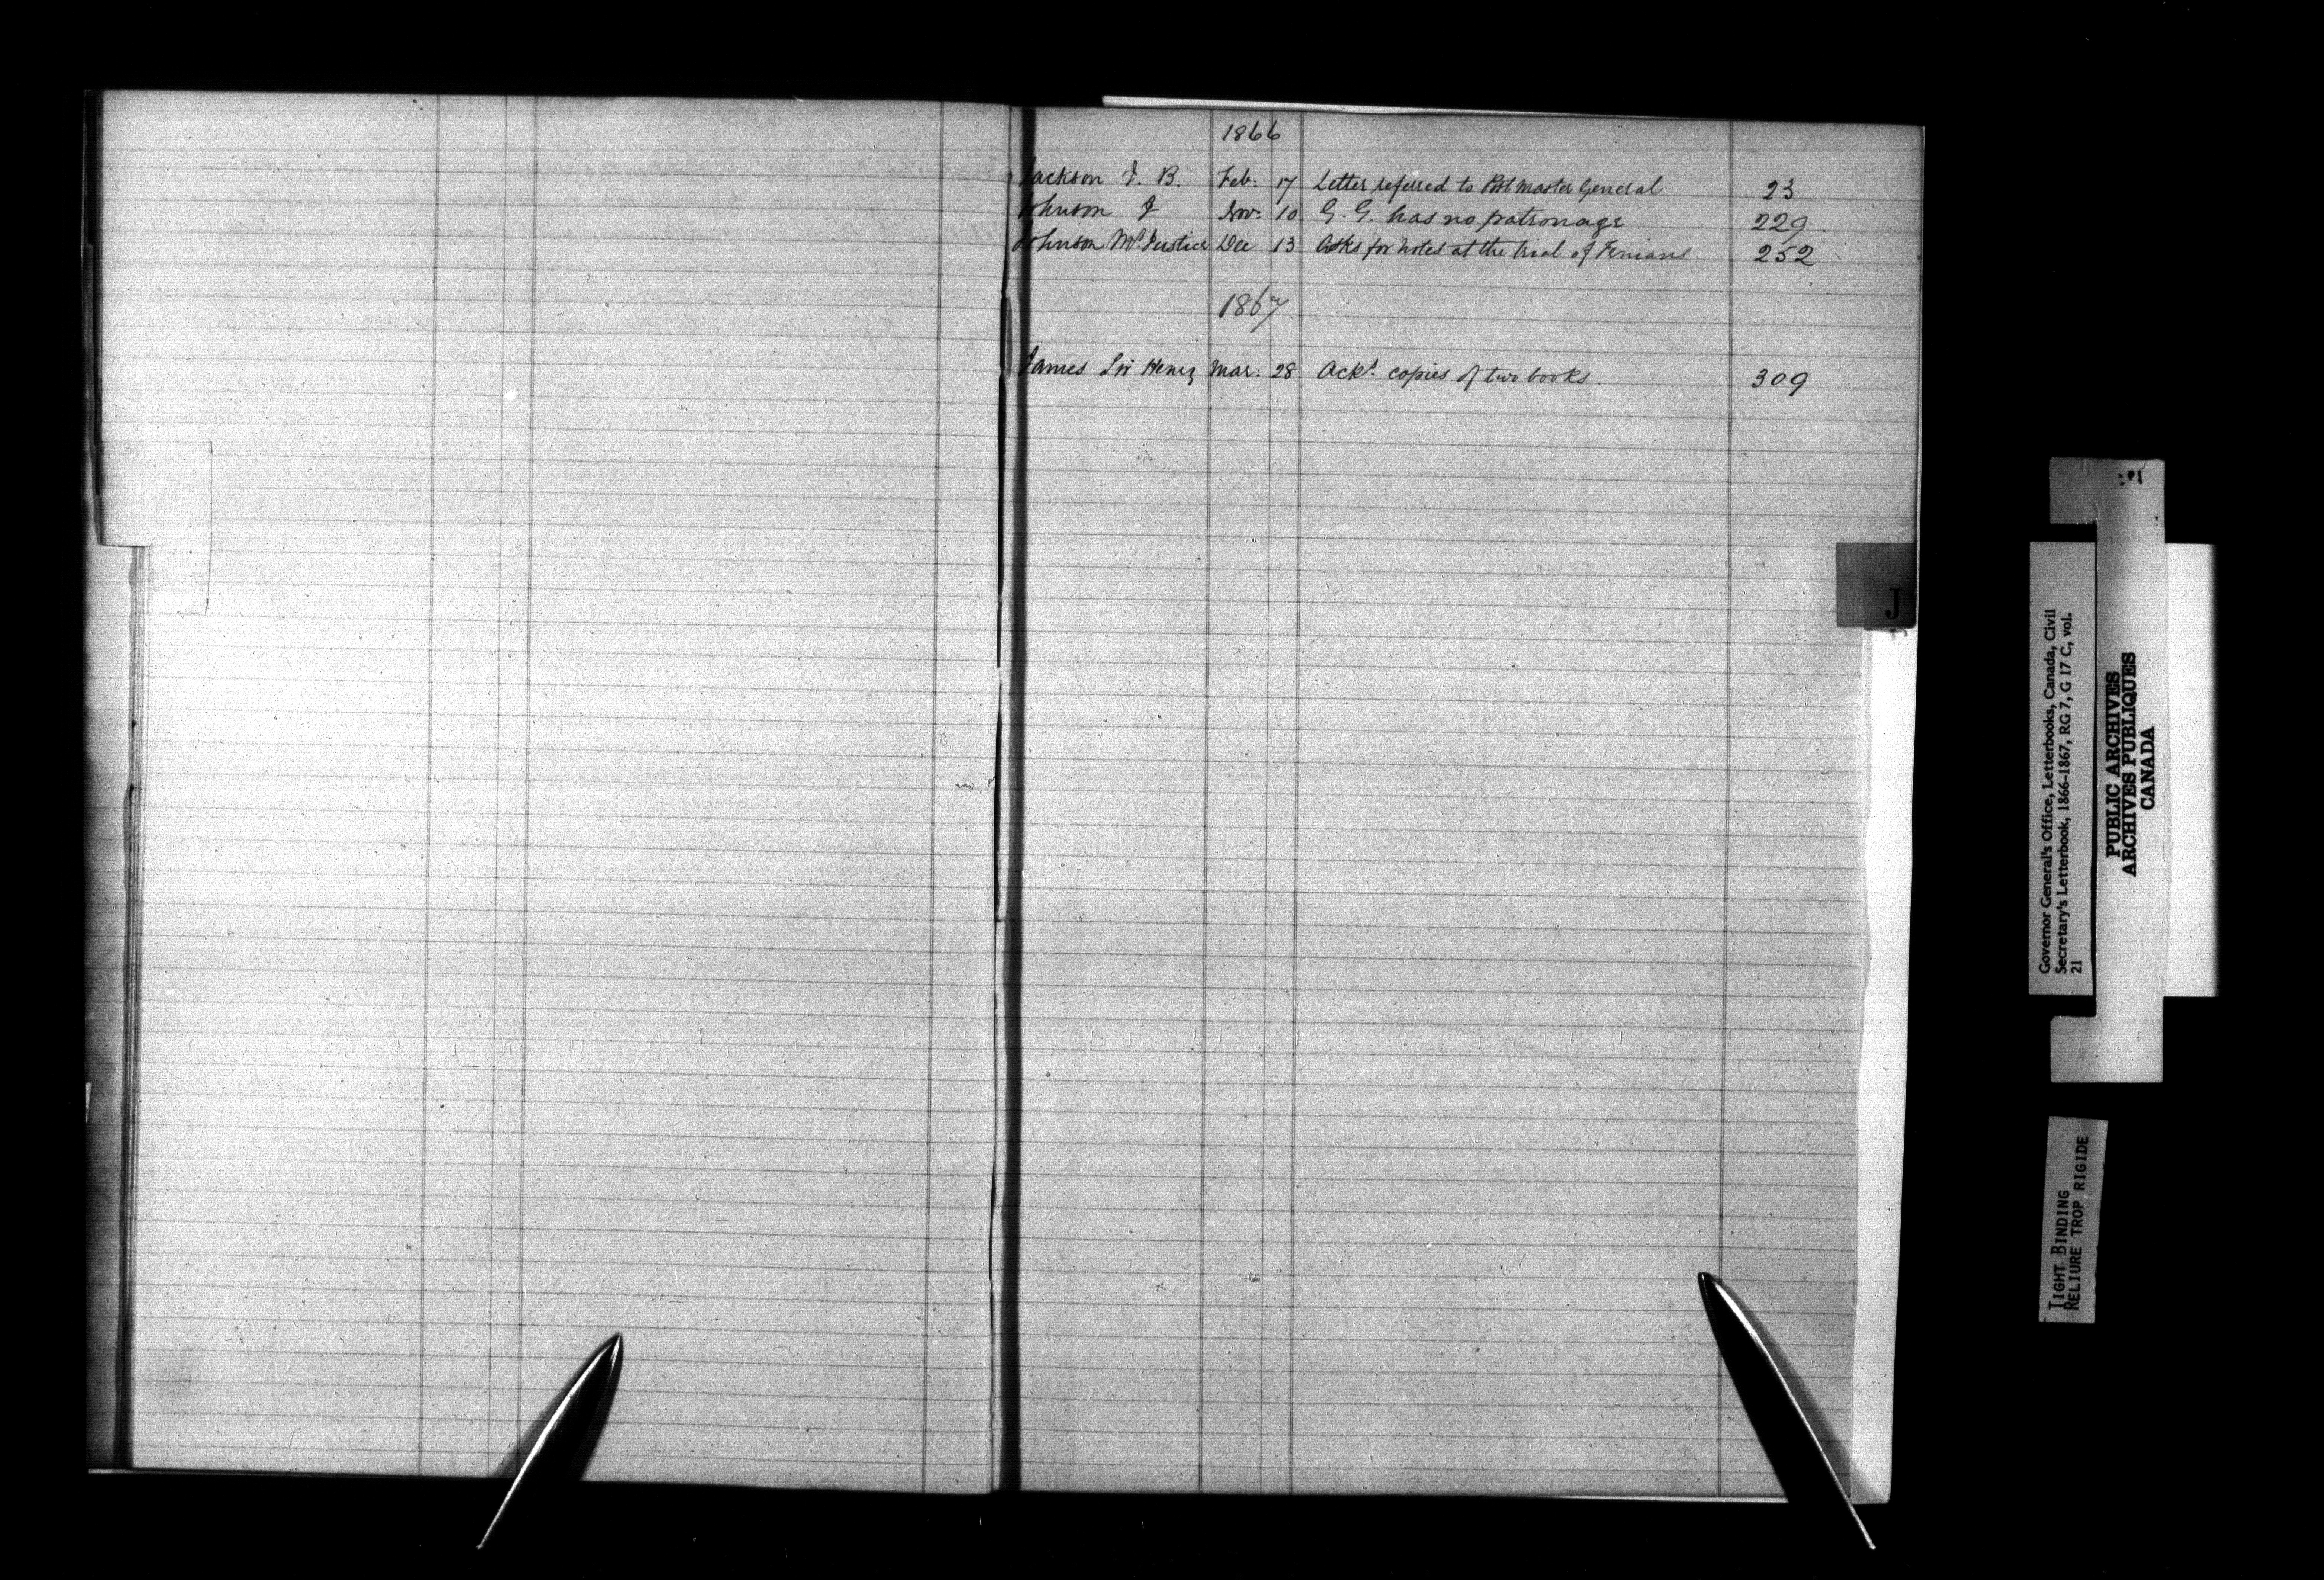 1866
Jackson J. B. Feb: 17 Letter referred to Post Master General 23
Johnson J Nov: 10 G. G. has no patronage 229
Johnson Mr. Justice Dec 13 Asks for notes at the trial of Fenians 252
1867
James Sir Henry Mar: 28 Ackt. copies of two books. 309
J
Governor General's Office, Letterbooks, Canada, Civil
Secretary's Letterbook, 1866-1867, RG 7, G 17 C, vol.
21
PUBLIC ARCHIVES
ARCHIVES PUBLIQUES
CANADA
TIGHT BINDING
RELIURE TROP RIGIDE